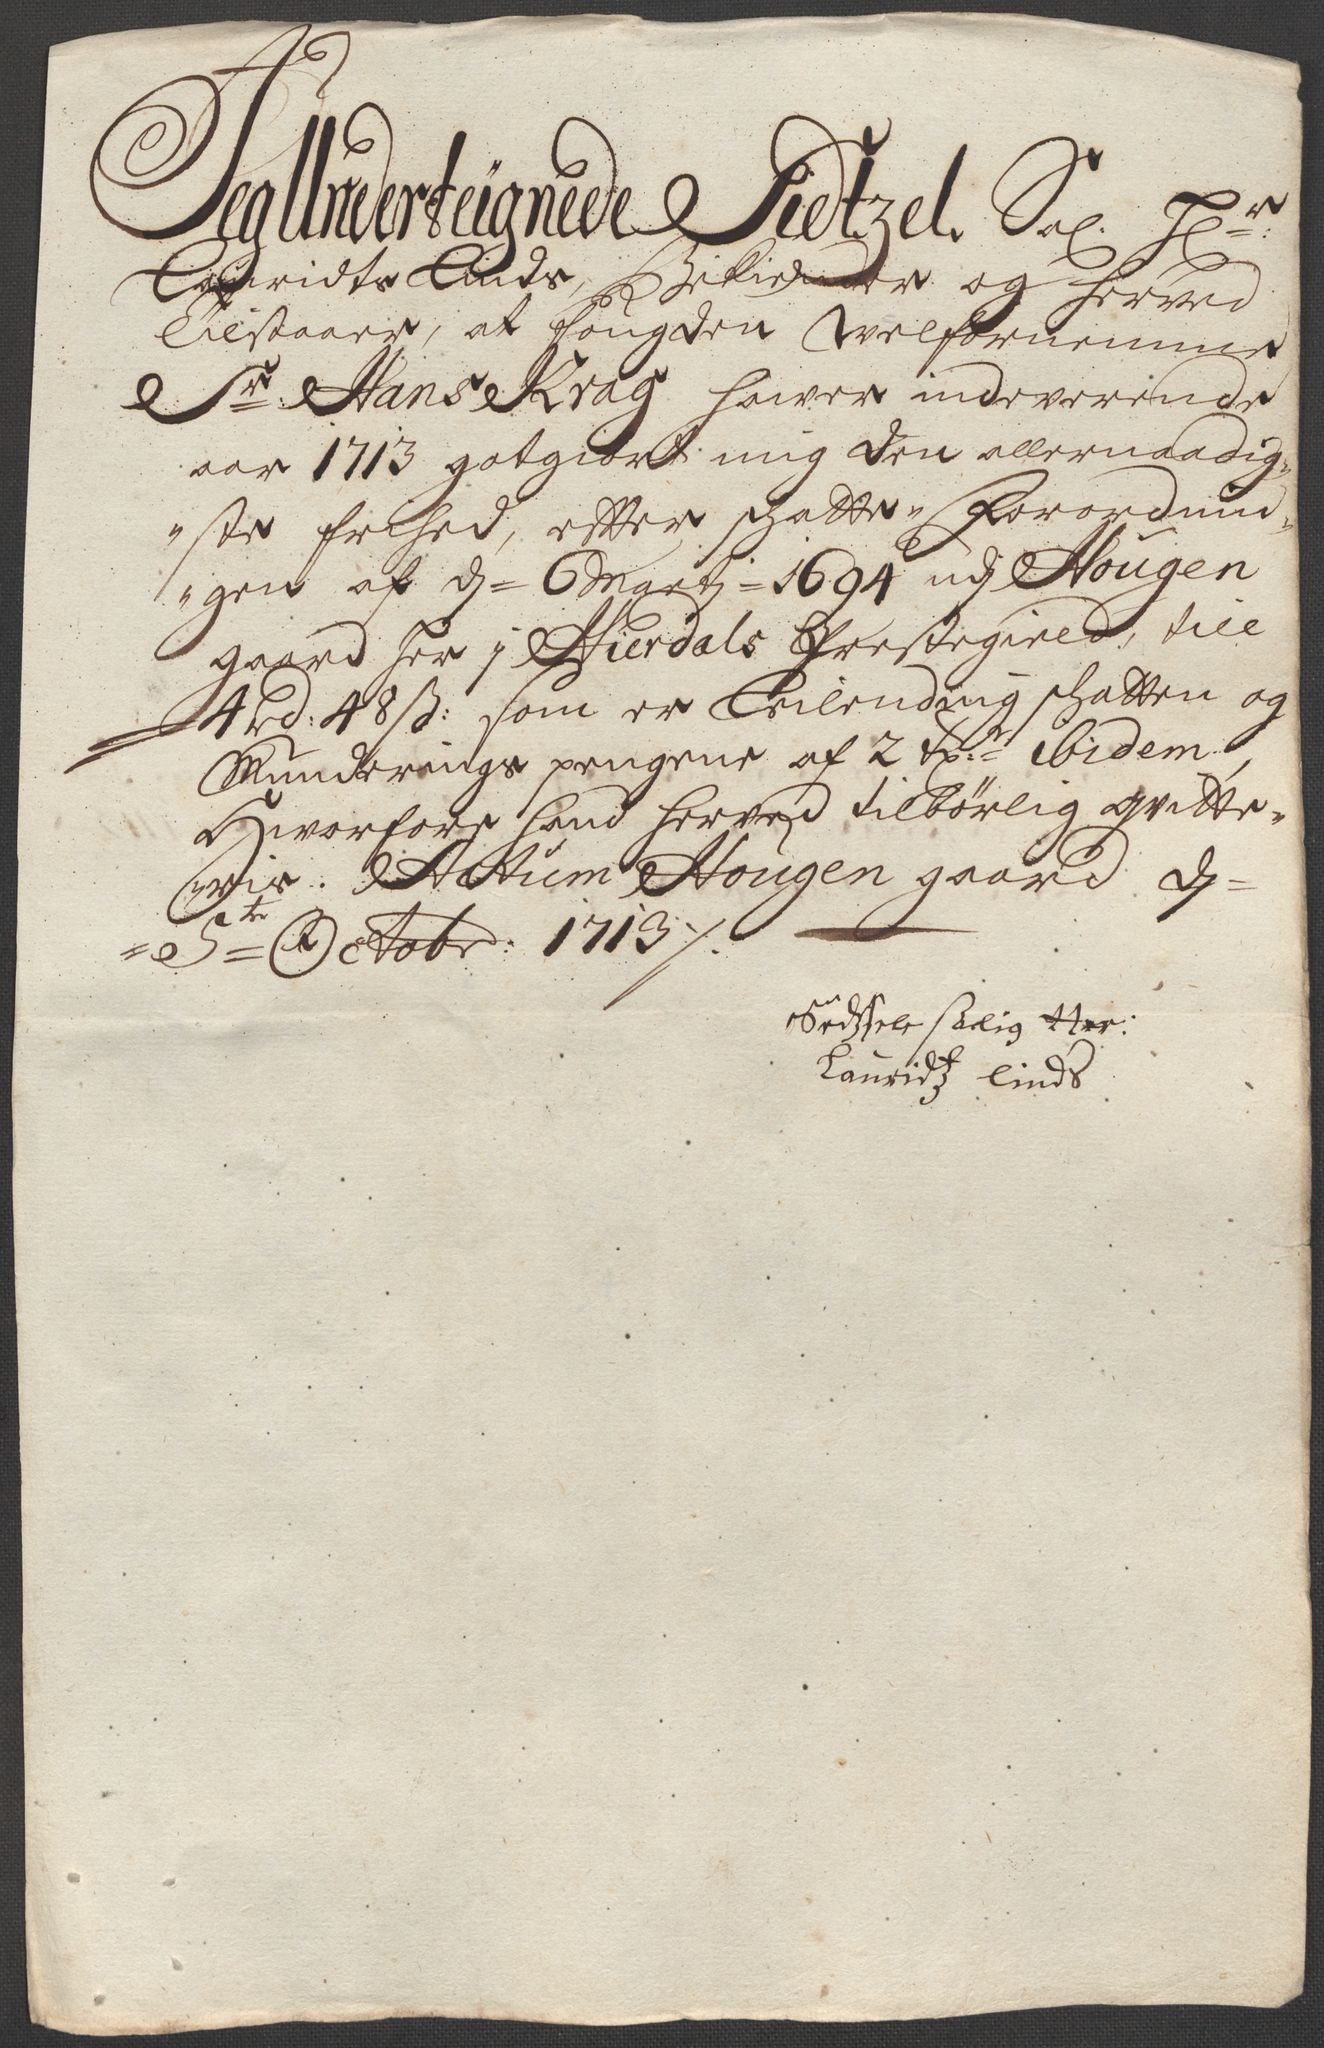 Jeg Underteignede Sidtzel. Sal. Hr:
Lauridts Linds, Bekiender og herved
Tilstaaer, at fougden Welfornemme
Sr. Hans Krag hawer indeverende
aar 1713 gotgiort mig den allernaadig-
"ste frihed, effter schatte" Forordnin-
"gen af dj= 6 Martj= 1694 udj Hougen
gaard her j Hierdals Prestegield, till
4 rd: 48 ß: som er Leilending schatten og
Munderings pengene af 2 tpr ibidem,
Hvorfore hand herved tilbörlig qvitte-
ris. Actum Hougen gaard dj=
=5te= Octobr: 1713 ⁒
Sidtzele salig Her:
Lauridtz Linds